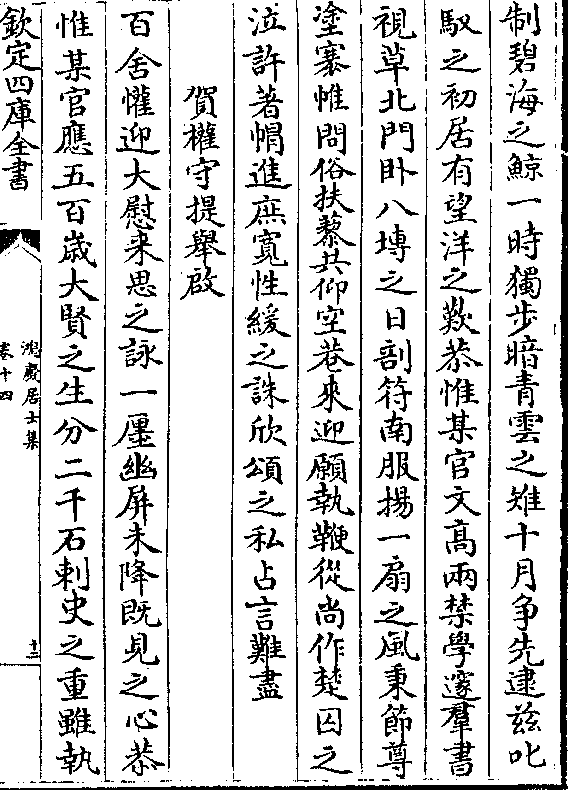 制碧海之鯨一時獨步暗青雲之雉十月争先逮兹叱
馭之初居有望洋之歎恭惟某官文高兩禁學邃羣書
視草北門卧八塼之日剖符南服揚一扇之風秉節尊
塗褰帷問俗扶藜共仰空巷來迎願執鞭從尚作楚囚之
泣許著㡌進庶寛性緩之誅欣頌之私占言難盡
賀權守提舉啟
百舍懽迎大慰来思之詠一廛幽屏未降既見之心恭
惟某官應五百歳大賢之生分二千石刺史之重雖執
欽定四庫全書
鴻慶居士集
卷十四
十三